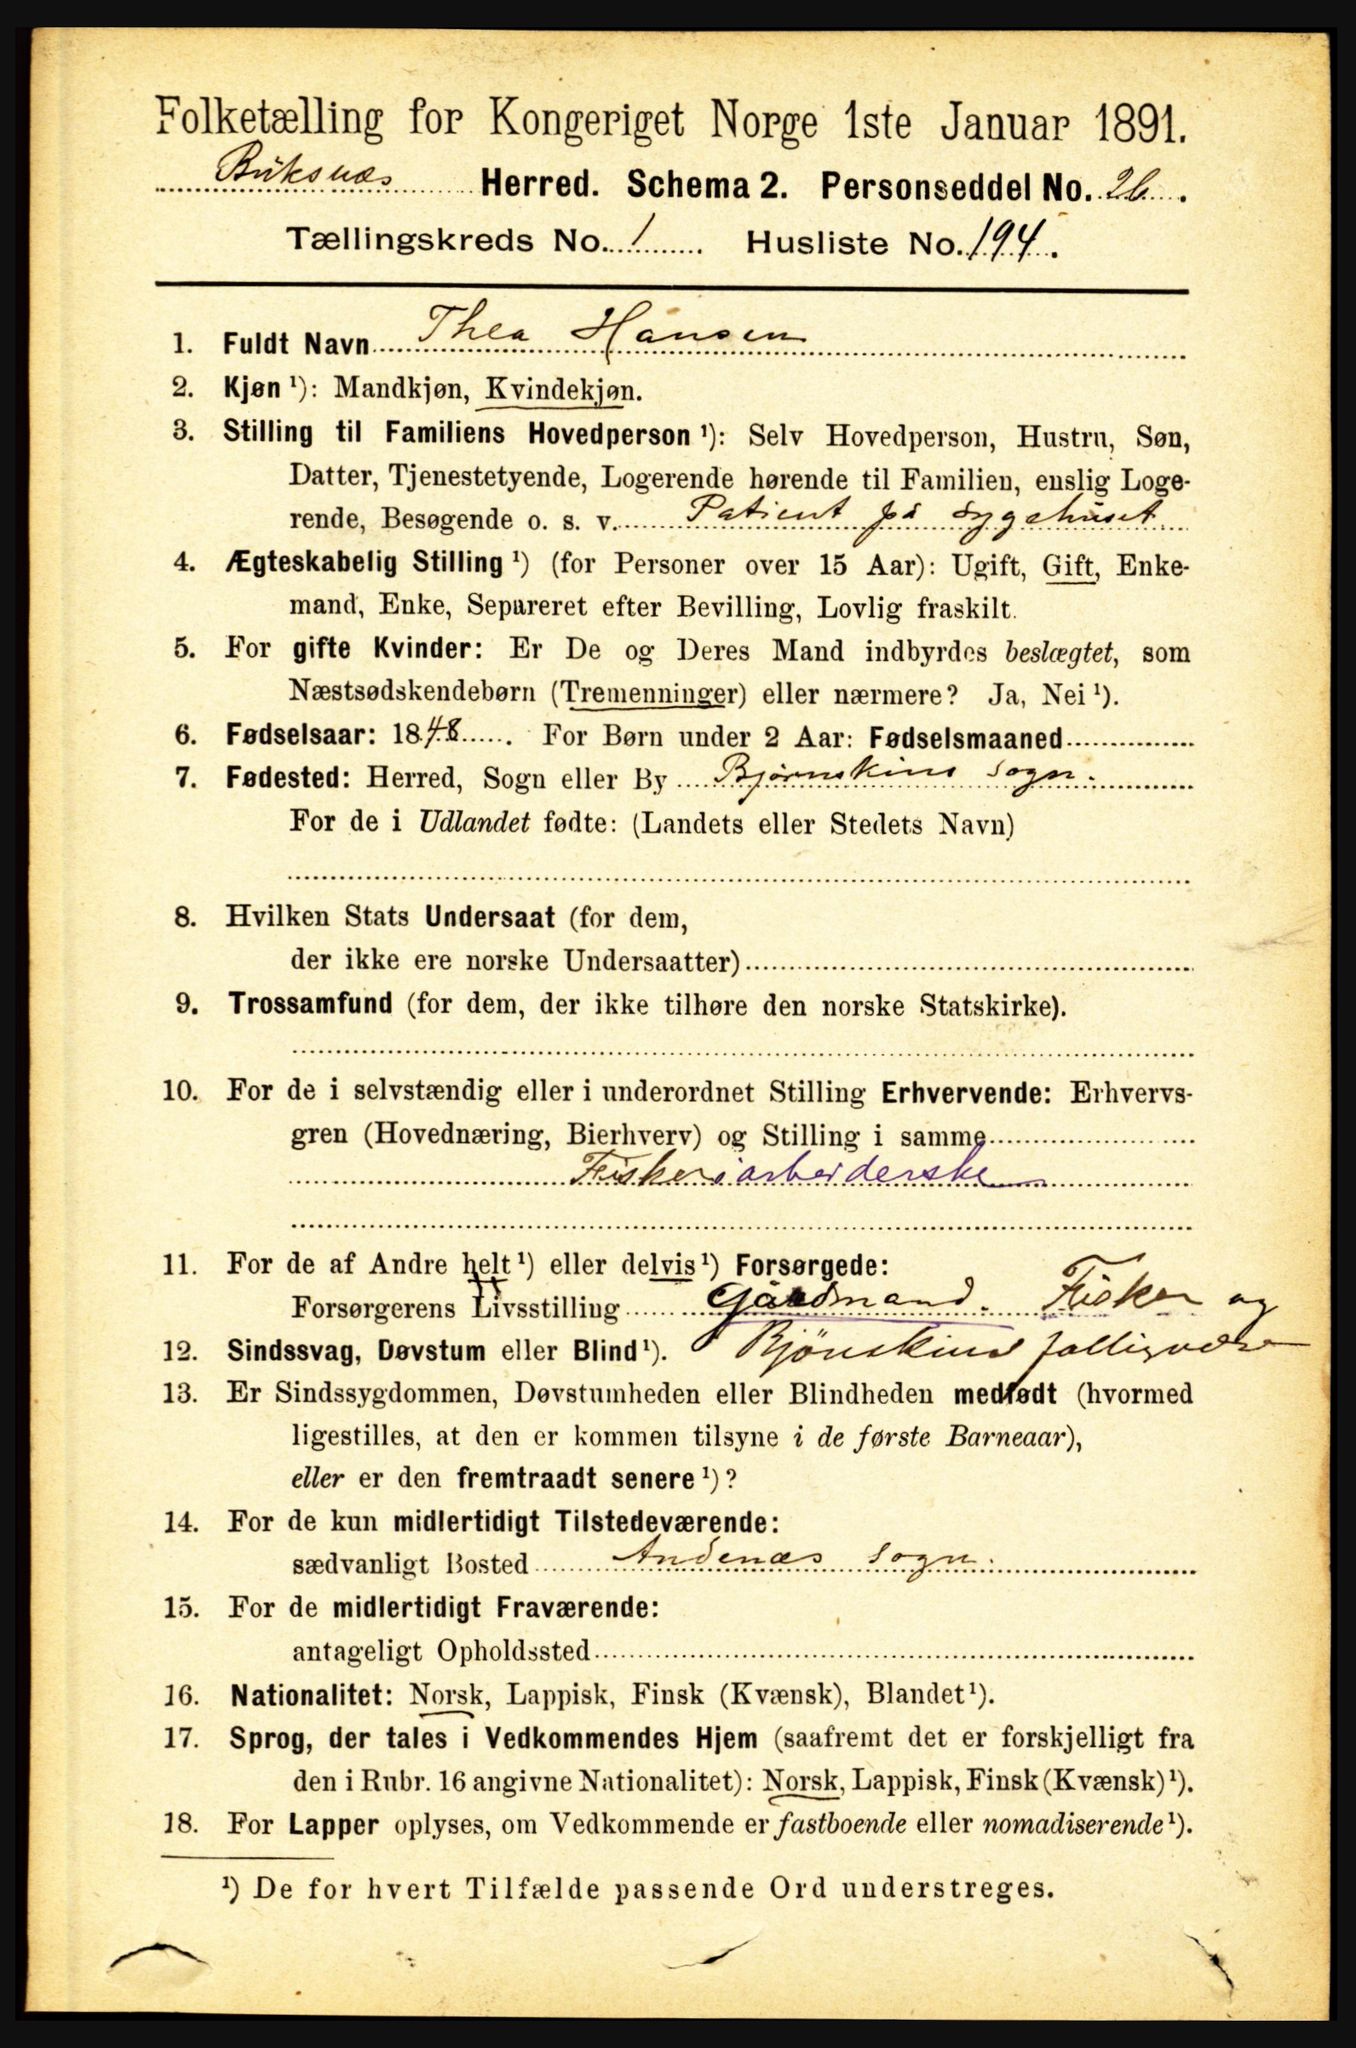 Folketælling for Kongeriget Norge 1ste Januar 1891.
Buksnæs Herred. Schema 2. Personseddel No. 26.
Tællingskreds No. 1 Husliste No. 194.
1. Fuldt Navn Thea Hansen
2. Kjøn ¹): Mandkjøn, Kvindekjøn.
3. Stilling til Familiens Hovedperson ¹): Selv Hovedperson, Hustru, Søn,
Datter, Tjenestetyende, Logerende hørende til Familien, enslig Loge-
rende, Besøgende o. s. v. Patient på Sygehuset
4. Ægteskabelig Stilling ¹) (for Personer over 15 Aar): Ugift, Gift, Enke-
mand, Enke, Separeret efter Bevilling, Lovlig fraskilt.
5. For gifte Kvinder: Er De og Deres Mand indbyrdes beslægtet, som
Næstsødskendebørn (Tremenninger) eller nærmere? Ja, Nei ¹).
6. Fødselsaar: 1848. For Børn under 2 Aar: Fødselsmaaned
7. Fødested: Herred, Sogn eller By Bjørnskins sogn.
For de i Udlandet fødte: (Landets eller Stedets Navn)
8. Hvilken Stats Undersaat (for dem,
der ikke ere norske Undersaatter)
9. Trossamfund (for dem, der ikke tilhøre den norske Statskirke).
10. For de i selvstændig eller i underordnet Stilling Erhvervende: Erhvervs-
gren (Hovednæring, Bierhverv) og Stilling i samme
Fiskeriarbeiderske
11. For de af Andre helt ¹) eller delvis ¹) Forsørgede:
Forsørgerens Livsstilling Gårdmand. Fisker og
12. Sindssvag, Døvstum eller Blind ¹). Bjønskins fattigvæse
13. Er Sindssygdommen, Døvstumheden eller Blindheden medfødt (hvormed
ligestilles, at den er kommen tilsyne i de første Barneaar),
eller er den fremtraadt senere ¹)?
14. For de kun midlertidigt Tilstedeværende:
sædvanligt Bosted Andenæs sogn.
15. For de midlertidigt Fraværende:
antageligt Opholdssted
16. Nationalitet: Norsk, Lappisk, Finsk (Kvænsk), Blandet ¹).
17. Sprog, der tales i Vedkommendes Hjem (saafremt det er forskjelligt fra
den i Rubr. 16 angivne Nationalitet): Norsk, Lappisk, Finsk (Kvænsk) ¹).
18. For Lapper oplyses, om Vedkommende er fastboende eller nomadiserende ¹).
¹) De for hvert Tilfælde passende Ord understreges.